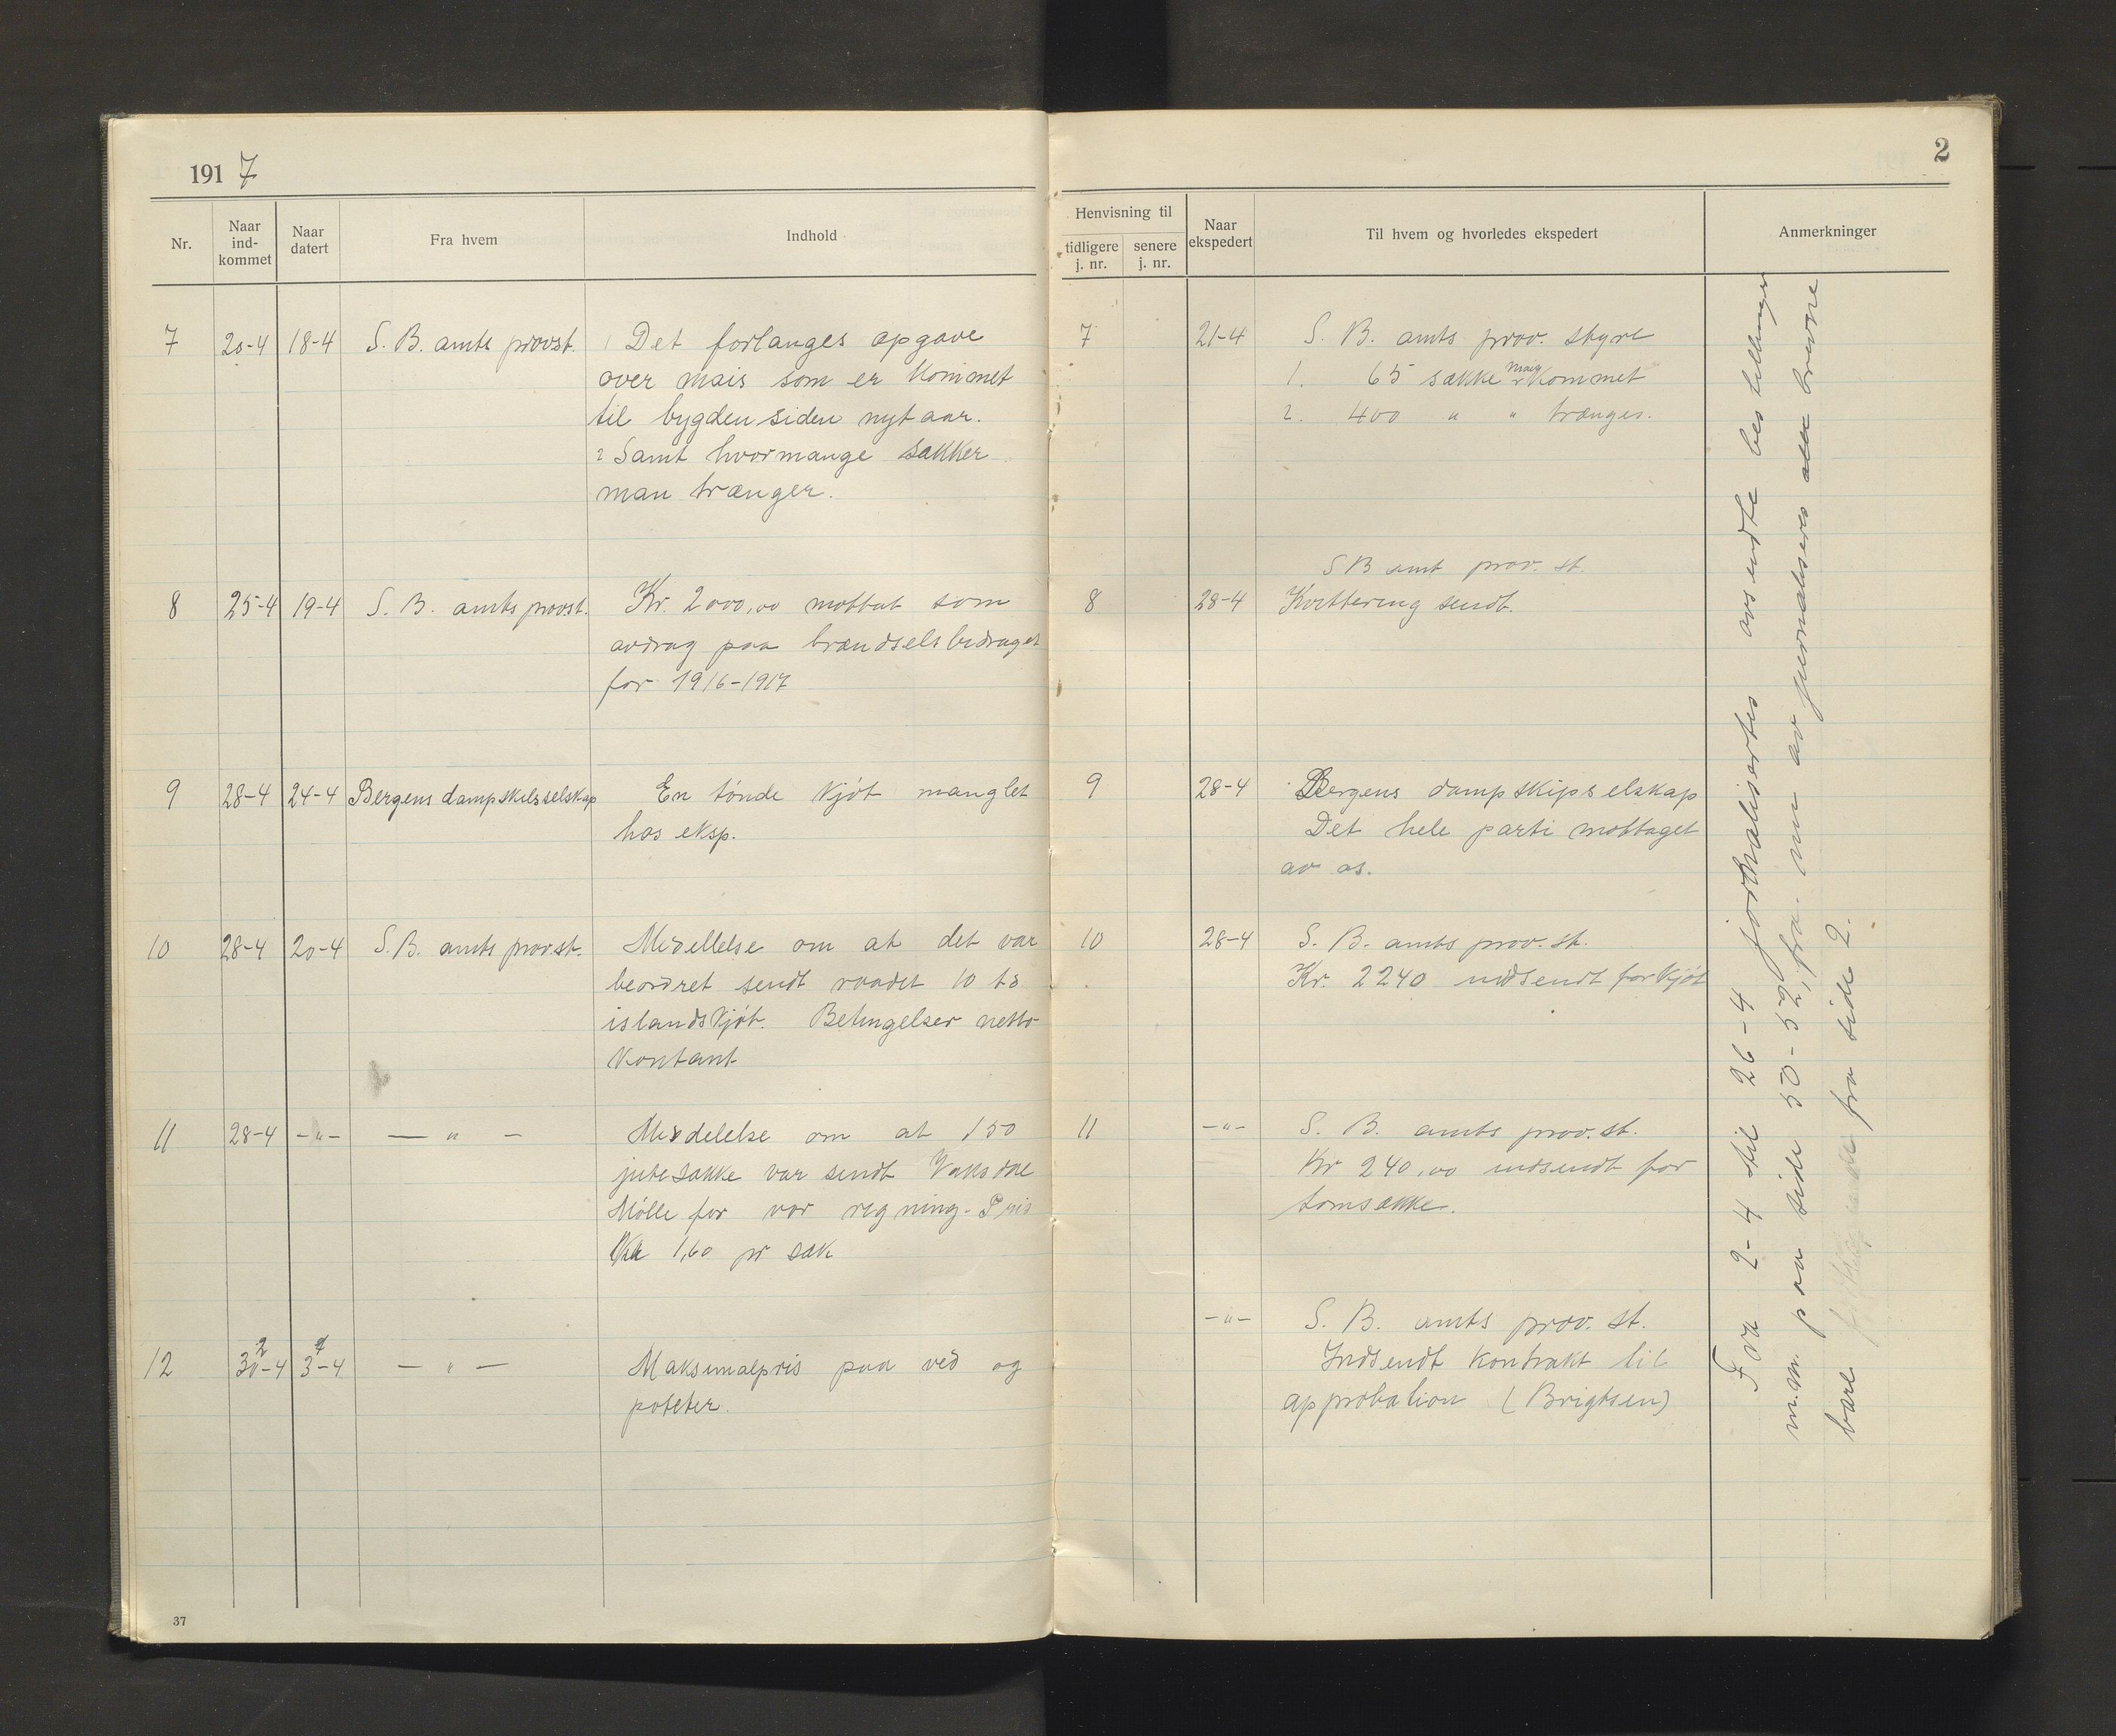 1917
2
Nr.
Naar ind- kommet
Naar datert
Fra hvem
Indhold
Henvisning til
tidligere j. nr.
senere j. nr.
Naar ekspedert
Til hvem og hvorledes ekspedert
Anmerkninger
7 20-4 18-4 S. B. amts provst. 1 Det forlanges opgave
over mais som er kommet
til bygden siden nytaar.
2 Samt hvormange sækker
man trænger.
7 21-4 S. B. amts prov. styre
1. 65 sække mais kommet
2. 400 " " trænges.
8 25-4 19-4 S. B. amts provst. Kr. 2000,00 mottat som
avdrag paa brændselsbidraget
for 1916-1917
S B amt prov. st.
8 28-4 Kvittering sendt.
9 28-4 24-4 Bergens dampskibsselskap En tönde kjöt manglet
hos eksp.
9 28-4 Bergens dampskipselskap
Det hele parti mottaget
av os.
10 28-4 20-4 S.B. amts prov.st. Medellelse om at det var
beordret sendt raadet 10 td
islandskjöt. Betingelser netto
kontant
10 28-4 S. B. amts prov. st.
Kr. 2240 indsendt for kjöt
11 28-4 -"- — " — Meddelelse om at 150
jutesække var sendt Vaksdal
Mölle for vor regning. Pris
Kr 1,60 pr sæk
11 -"- S. B. amts prov. st.
Kr 240,00 indsendt for
tomsække.
12 30-4 3-4 — " — Maksimalpris paa ved og
poteter.
-"- S. B. amts prov. st.
Indsendt kontrakt til
approbation (Brigtsen)
Fra 2-4 til 26-4 jornalisertes avsendte bestillinger
m.m. paa side 50-52, fra nu av jurnaliseres alle brevene
bare fra side 2.
37